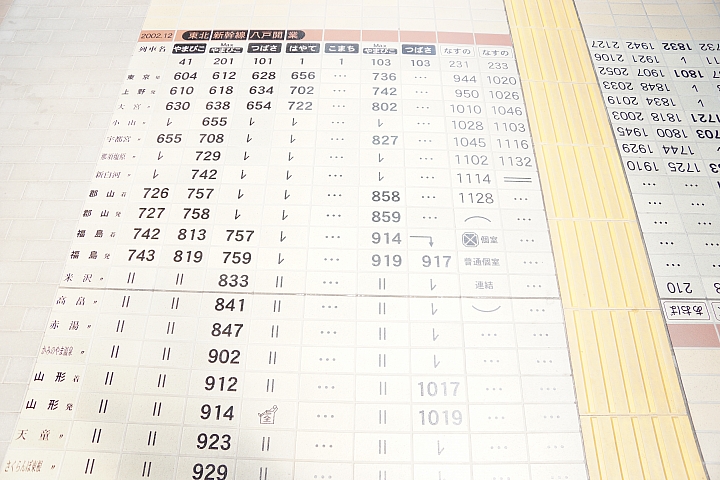 2002.12 東北新幹線八戸開業
列車名 やまびこ Maxやまびこ つばさ はやて こまち Maxやまびこ つばさ なすの なすの
41 201 101 1 1 103 103 231 233
東京発 604 612 628 656 … 736 … 944 1020
上野〃 610 618 634 702 … 742 … 950 1026
大宮〃 630 638 654 722 … 802 … 1010 1046
小山〃 レ 655 レ レ … レ … 1028 1103
宇都宮〃 655 708 レ レ … 827 … 1045 1116
那須塩原〃 レ 729 レ レ … レ … 1102 1132
新白河〃 レ 742 レ レ … レ … 1114
郡山着 726 757 レ レ … 858 … 1128 …
郡山発 727 758 レ レ … 859 … …
福島着 742 813 757 レ … 914 個室 …
福島発 743 819 759 レ … 919 917 普通個室 …
米沢〃 || || 833 || … || レ 連結 …
高畠〃 || || 841 || … || レ …
赤湯〃 || || 847 || … || レ … …
かみのやま温泉〃 || || 902 || … || レ … …
山形着 || || 912 || … || 1017 … …
山形発 || || 914 全 … || 1019 … …
天童〃 || || 923 || … || レ … …
さくらんぼ東根〃 || || 929 || … || レ … …
2127 1942 1832
2106 1921 レ
2052 1907 1801
2033 1848 レ
2019 1834 レ
2003 1818 1721
1945 1800 1703
1929 1744 レ
1910 1725
210
あおば